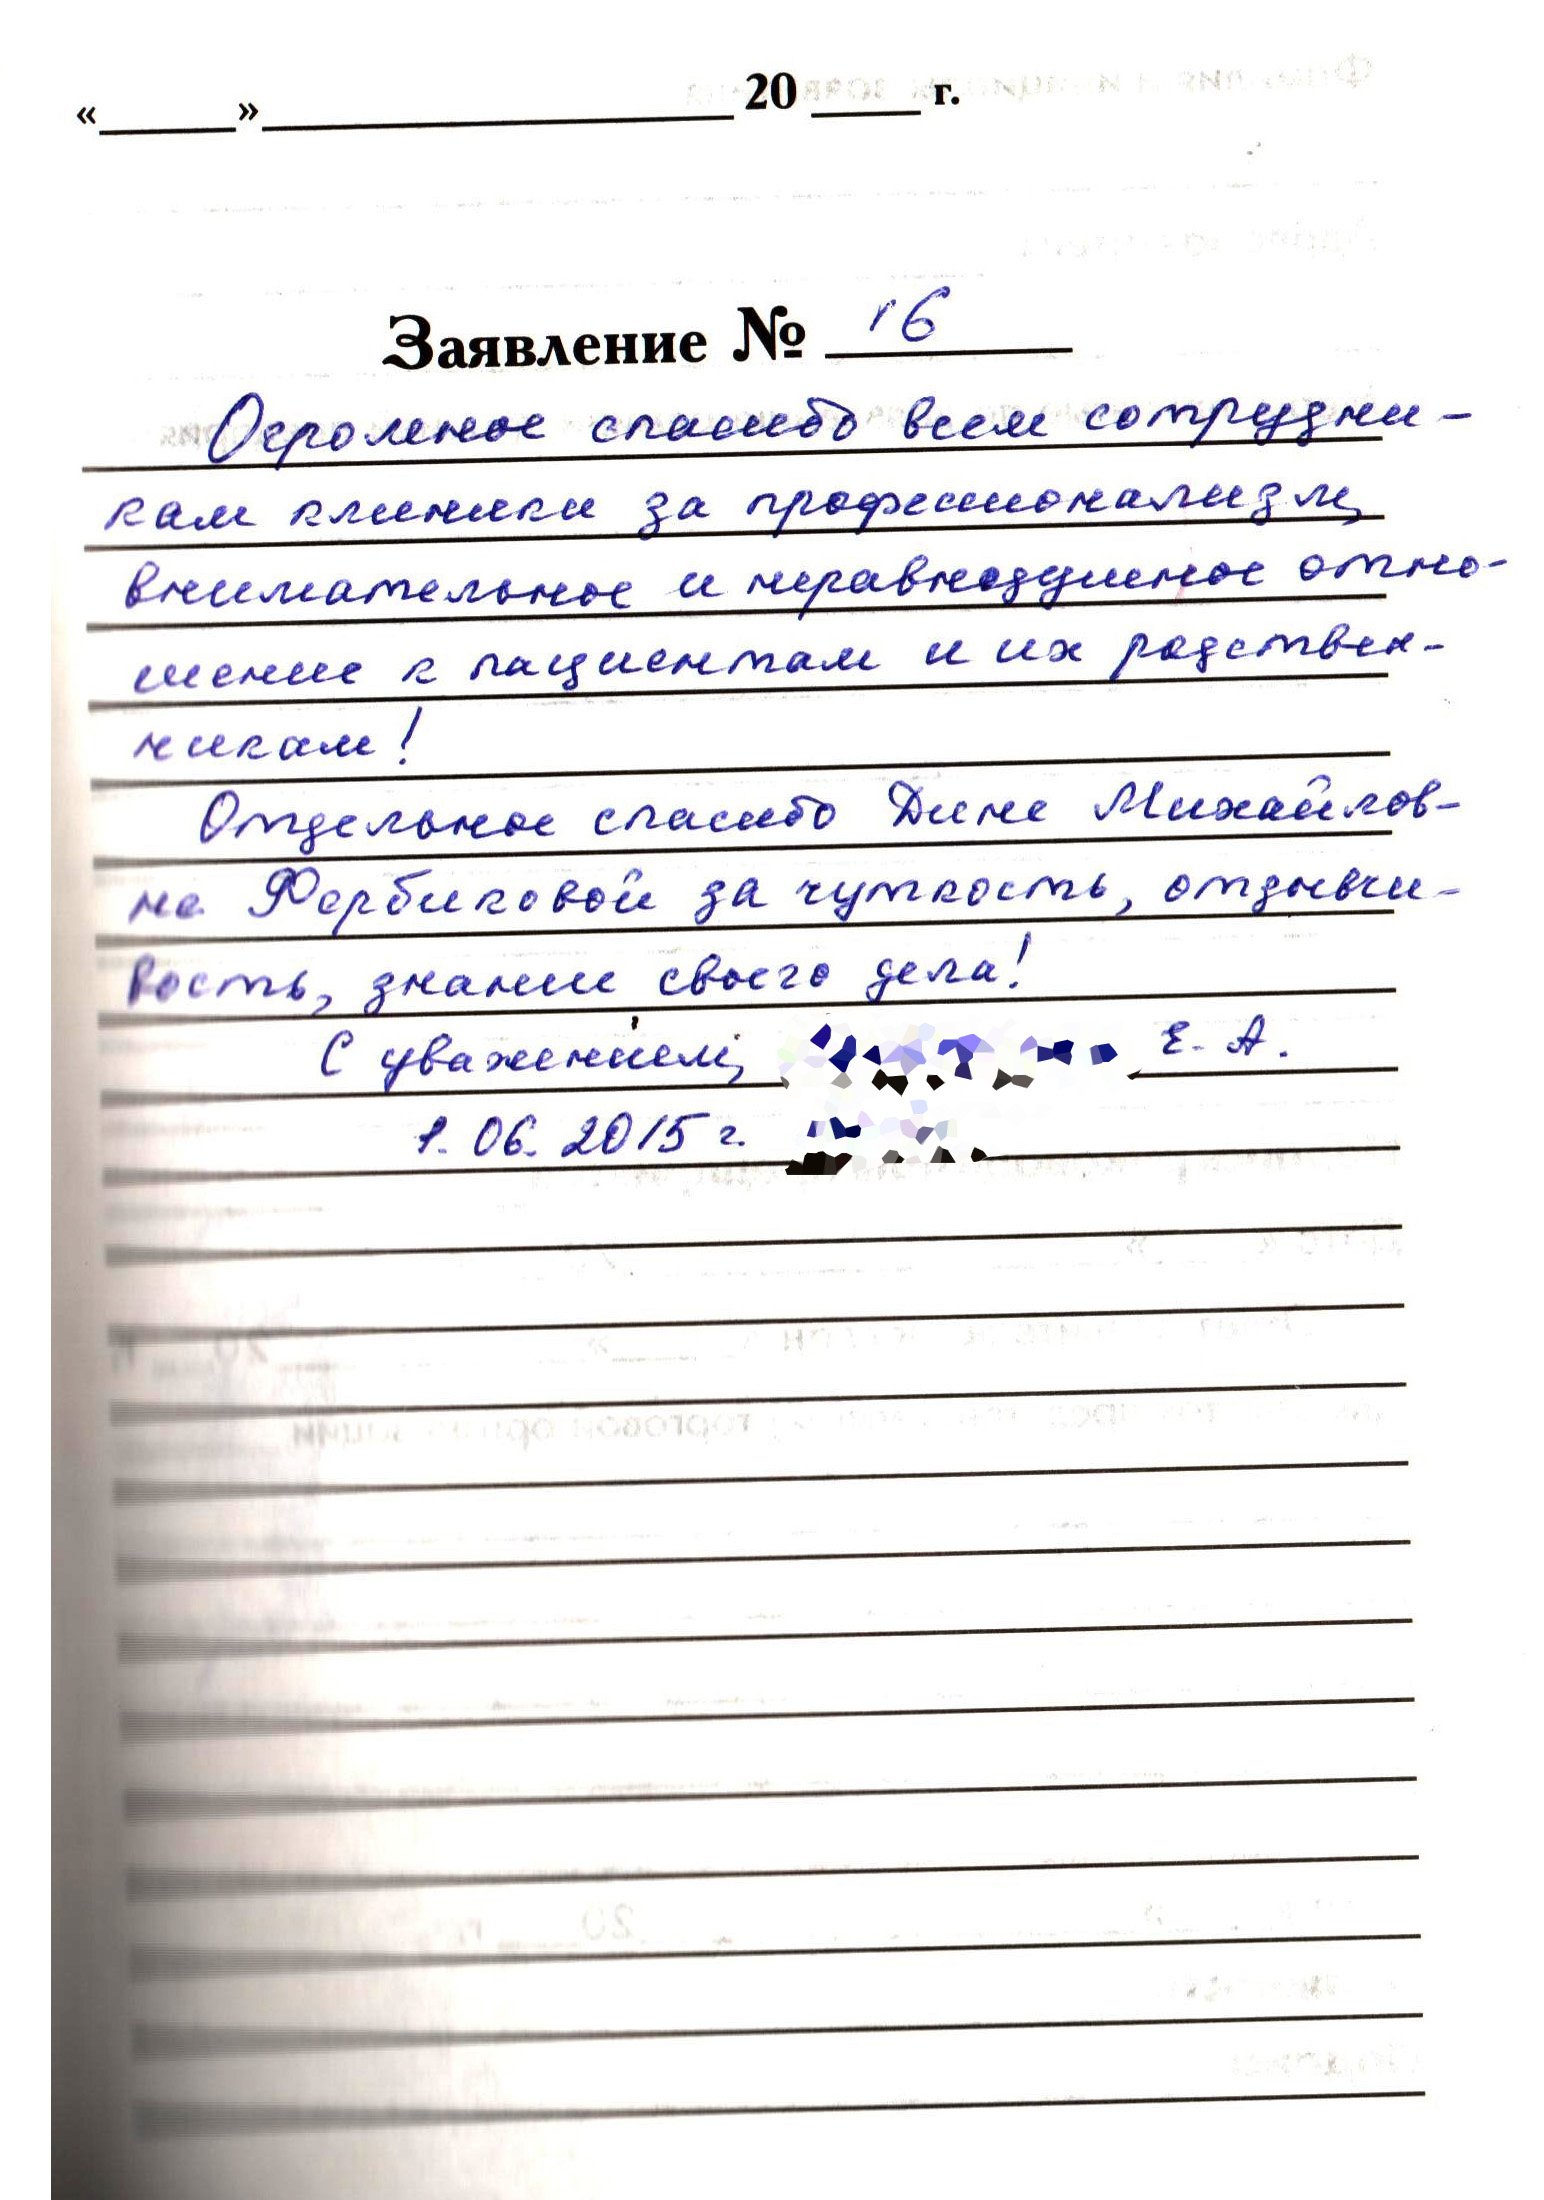 «______»____________________ 20 _____ г.
Заявление № 16
Огромное спасибо всем сотрудни-
кам клиники за профессионализм,
внимательное и неравнодушное отно-
шение к пациентам и их родствен-
никам!
Отдельное спасибо Дине Михайлов-
не Фербиковой за чуткость, отзывчи-
вость, знание своего дела!
С уважением, Е. А.
1.06.2015 г.